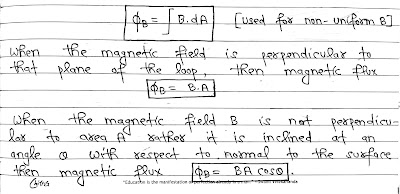 ϕB = ∫B.dA [used for non-uniform B]
When the magnetic field is perpendicular to
that plane of the loop, then magnetic flux
ϕB = B.A
When the magnetic field B is not perpendicu-
lar to area A rather it is inclined at an
angle θ with respect to normal to the surface
then magnetic flux ϕB = BA cosθ
"Education is the manifestation of perfection already in